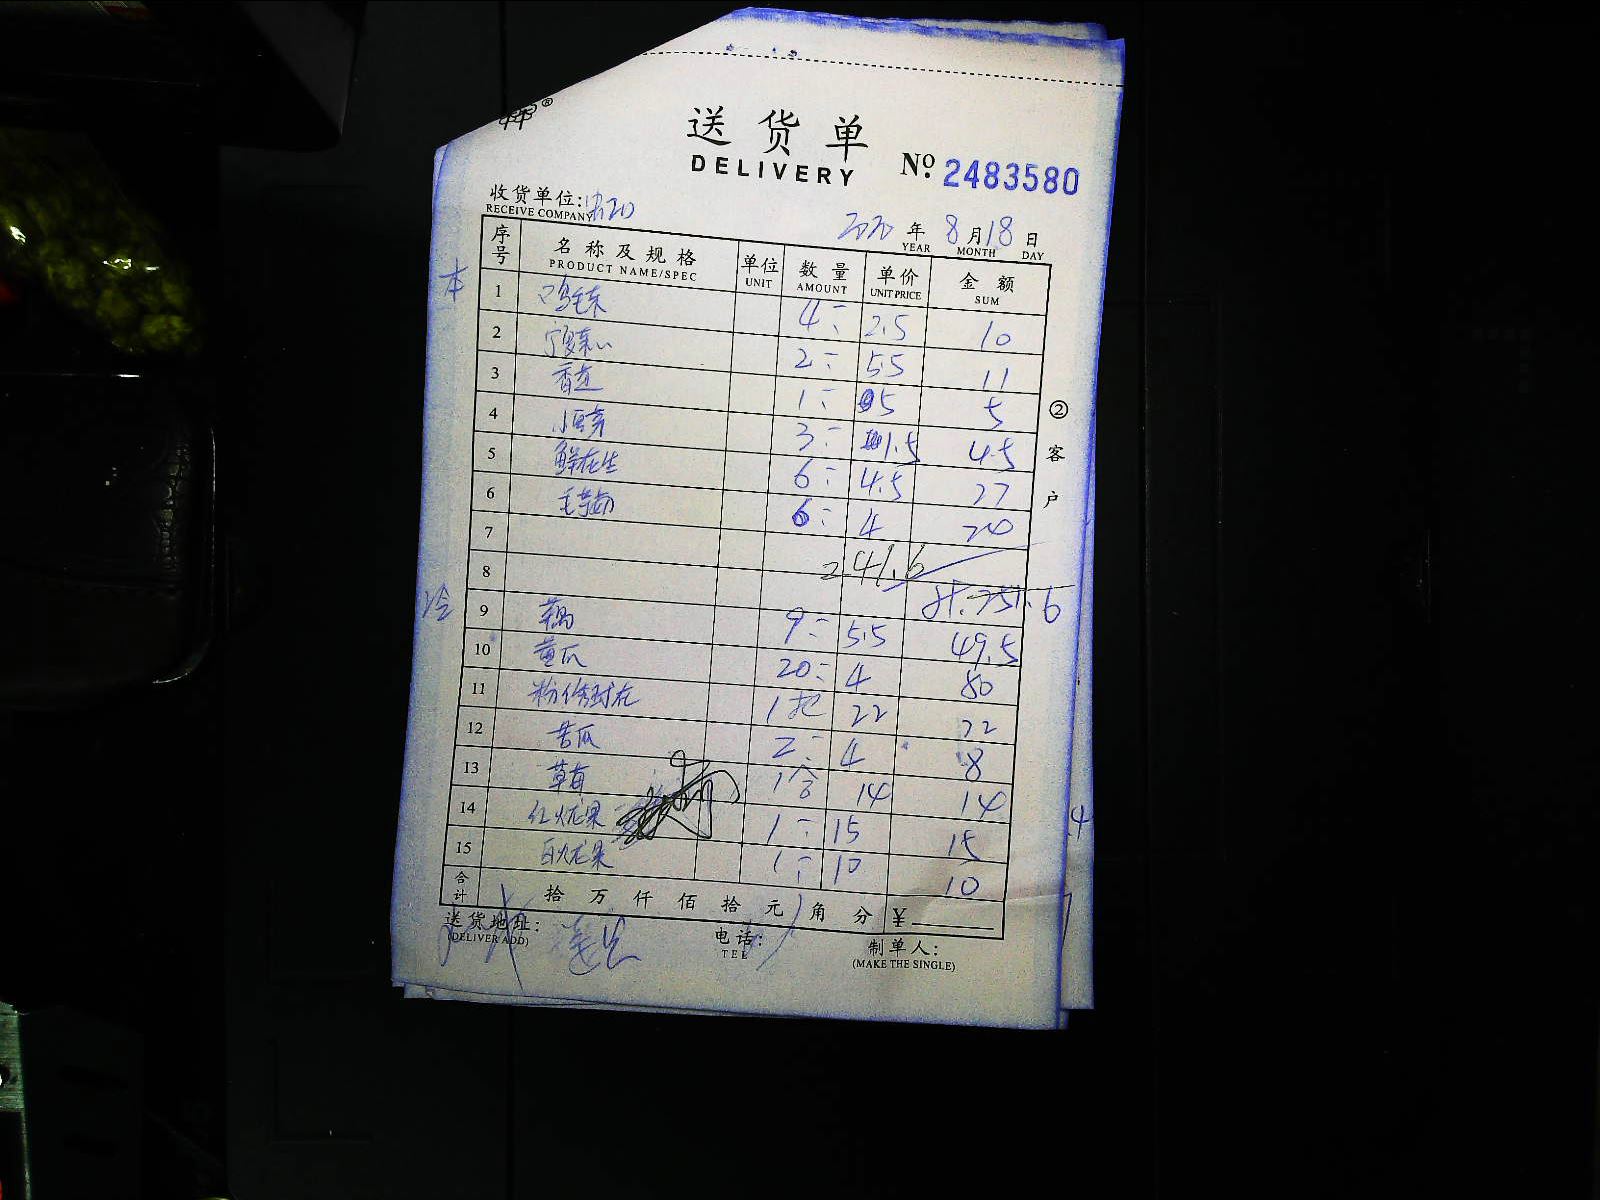 送货单
DELIVERY
No. 2483580
收货单位:
RECEIVE COMPANY
2020 年 8 月 18 日
YEAR MONTH DAY
序号 名称及规格 单位 数量 单价 金额
PRODUCT NAME/SPEC UNIT AMOUNT UNIT PRICE SUM
本
1 鸡毛菜 4 2.5 10
2 2 5.5 11
3 香芷 1 5 5
4 3 1.5 4.5
5 鲜花生 6 4.5 27
6 毛芋艿 6 4
7
241.6
8
251.6
冷
9 藕 9 5.5 49.5
10 黄瓜 20 4 80
11 粉 1把 22 22
12 苦瓜 2 4 8
13 草莓 1合 14 14
14 红火龙果 1 15 15
15 白火龙果 1 10 10
合计 拾 万 仟 佰 拾 元 角 分 ¥
送货地址:
(DELIVER ADD)
电话:
TEL
制单人:
(MAKE THE SINGLE)
② 客户